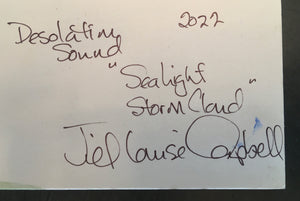 Desolation 2022
Sound
"Sealight
Storm Cloud"
Louise Campbell